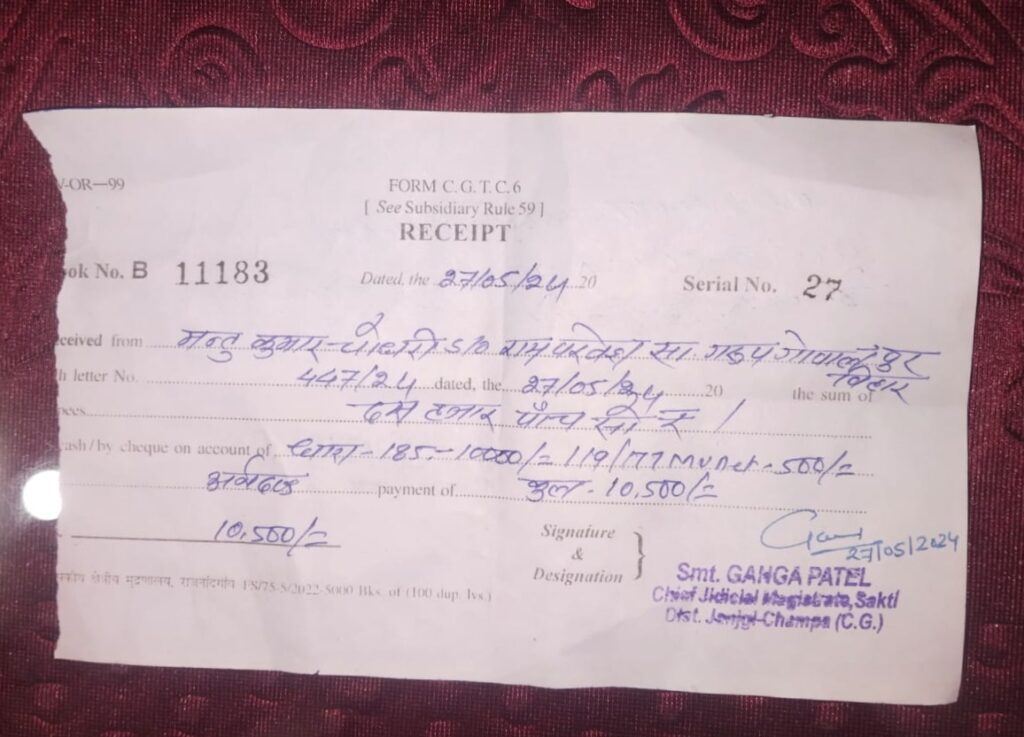 V-OR—99
FORM C.G.T.C.6
[ See Subsidiary Rule 59 ]
RECEIPT
ok No. B 11183 Dated, the 27/05/24 20 Serial No. 27
ceived from मन्टु कुमार S/O सा. बिहार
h letter No. 447/24 dated, the 27/05/24 20 the sum of
ees दस हजार पाँच सौ रु /
cash/by cheque on account of धारा - 185 - 10000/= 119/177 MV Act - 500/=
अर्थदण्ड payment of कुल - 10,500/=
10,500/=
Signature
&
Designation
27/05/2024
Smt. GANGA PATEL
Chief Jidicial Magistrate, Sakti
Dist. Janjgi-Champa (C.G.)
सकीय क्षेत्रीय मुद्रणालय, राजनांदगाँव 1S/75-S/2022-5000 Bks. of (100 dup. lvs.)